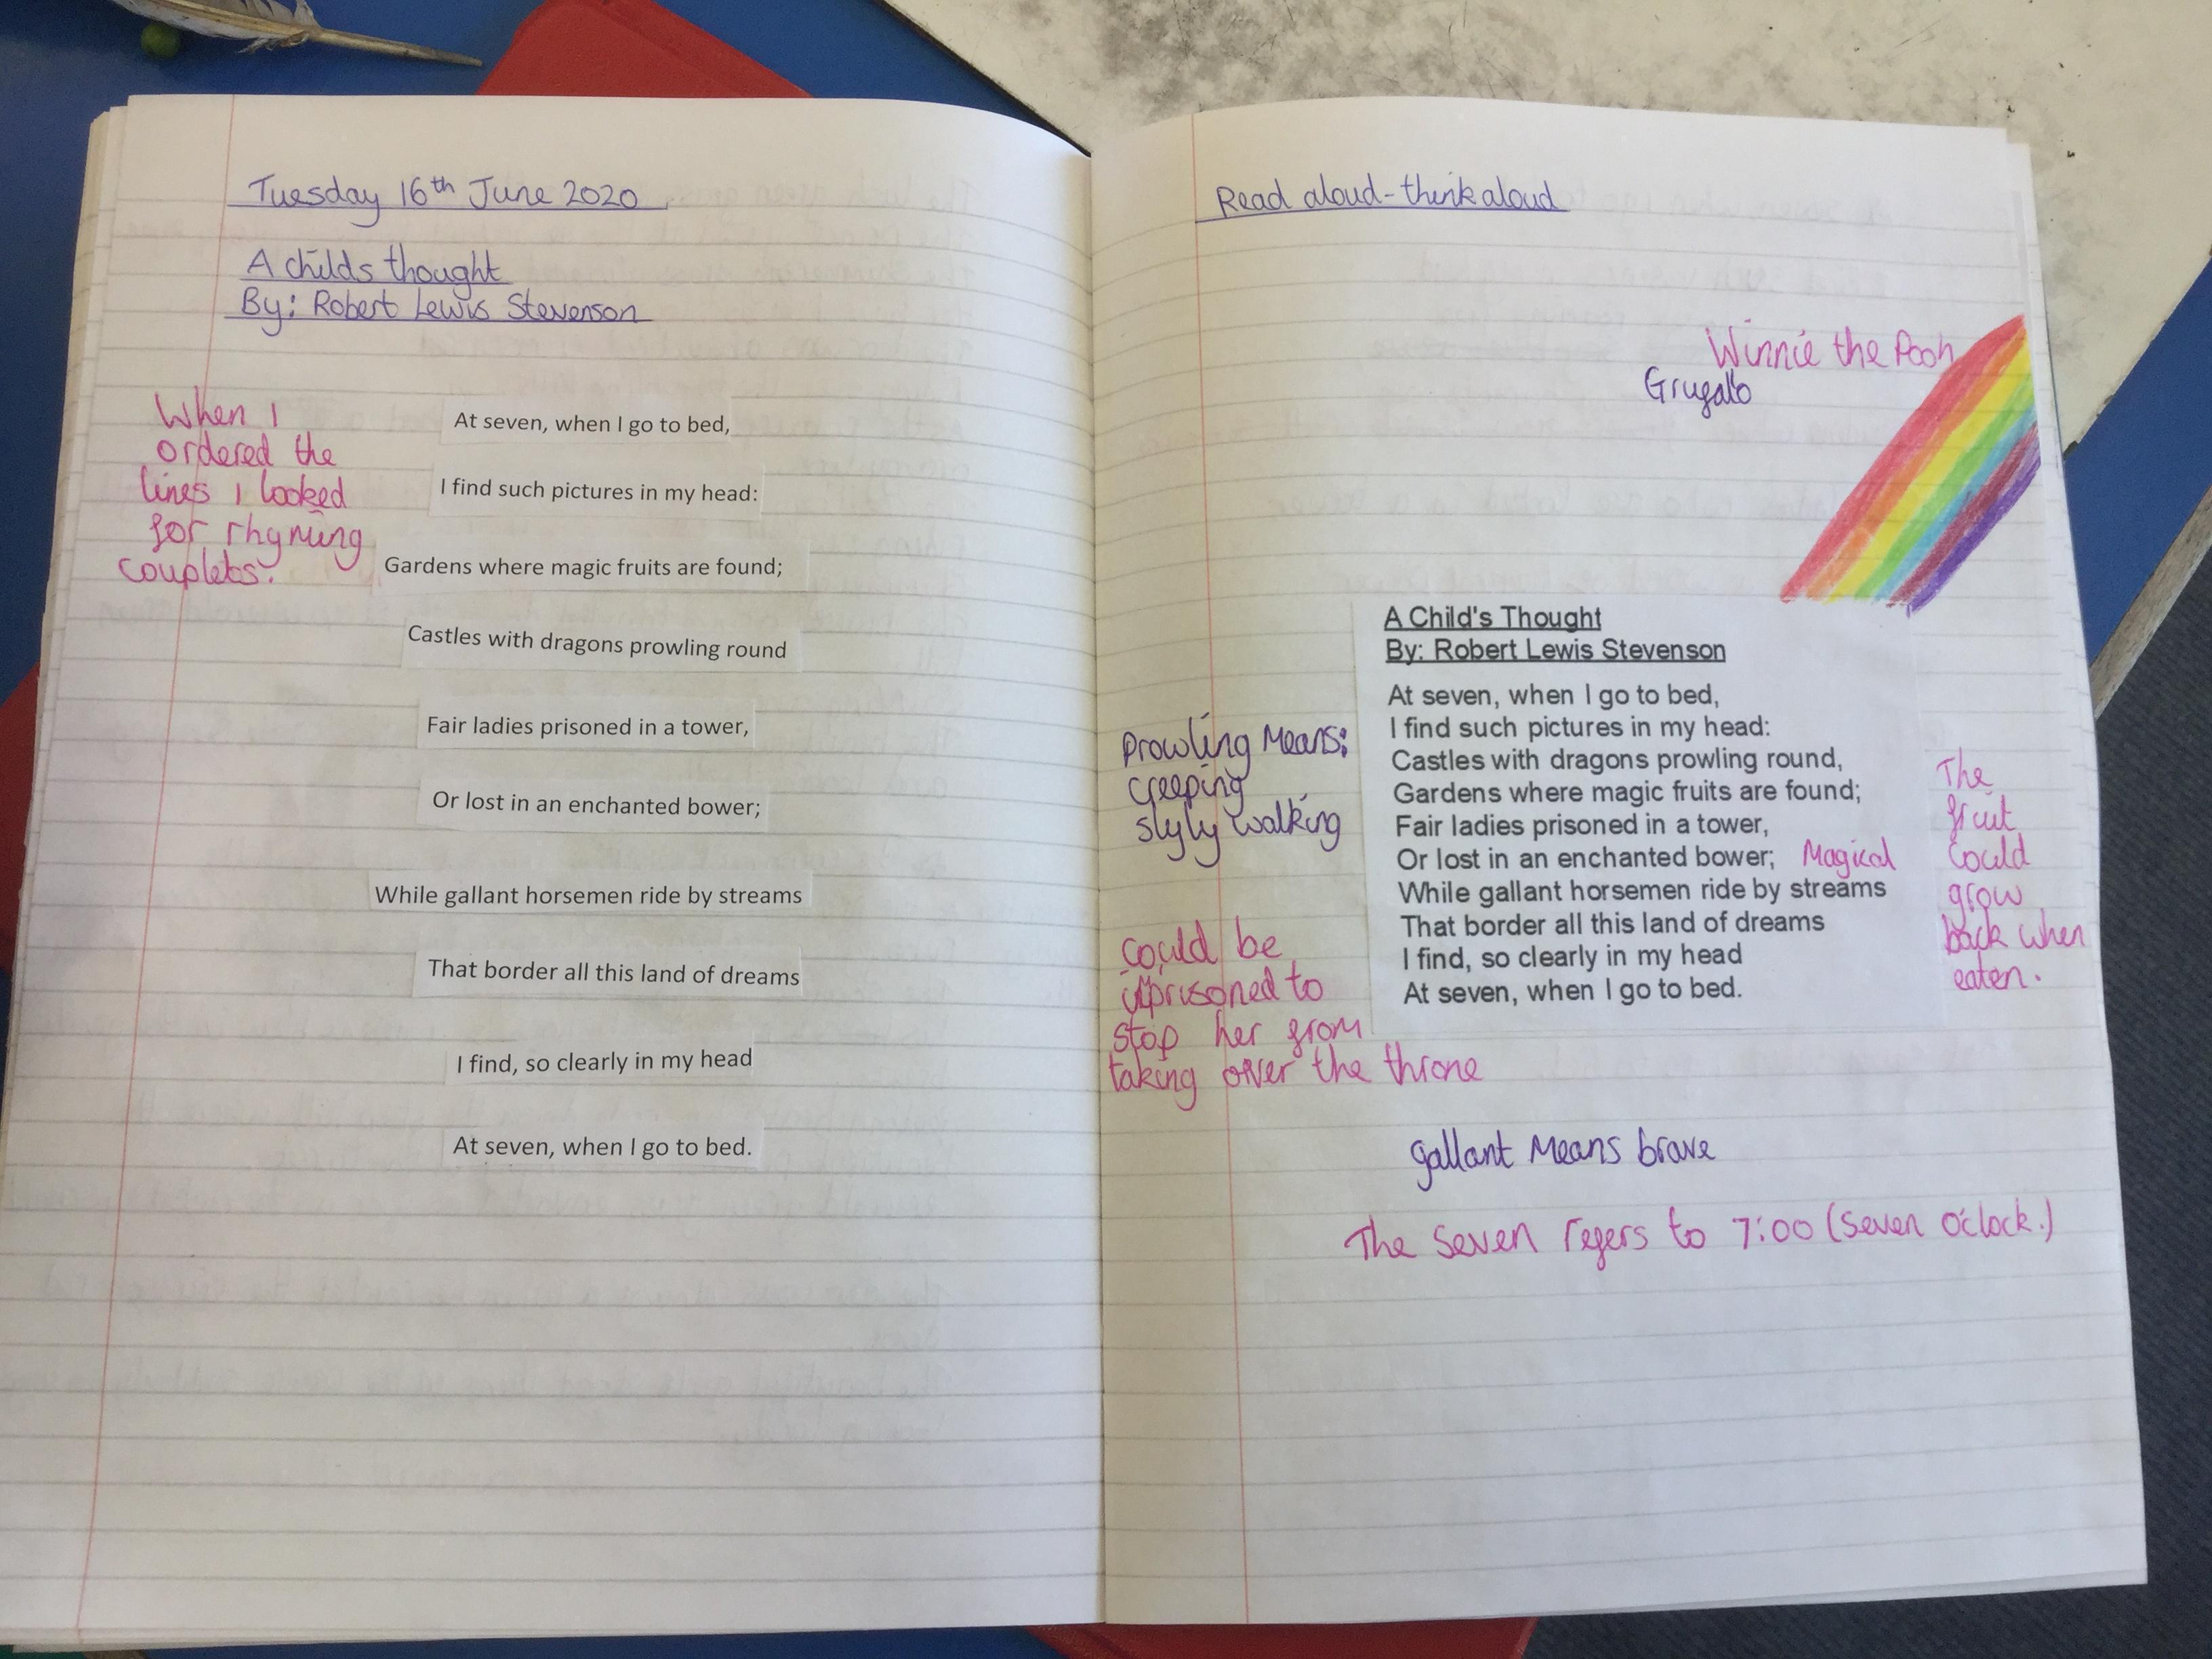 Tuesday 16th June 2020
A childs thought
By: Robert Lewis Stevenson
When I
ordered the
lines I looked
for rhyming
couplets.
At seven, when I go to bed,
I find such pictures in my head:
Gardens where magic fruits are found;
Castles with dragons prowling round
Fair ladies prisoned in a tower,
Or lost in an enchanted bower;
While gallant horsemen ride by streams
That border all this land of dreams
I find, so clearly in my head
At seven, when I go to bed.
Read aloud-think aloud
Winnie the Pooh
Grugalo
A Child's Thought
By: Robert Lewis Stevenson
At seven, when I go to bed,
I find such pictures in my head:
Castles with dragons prowling round,
Gardens where magic fruits are found;
Fair ladies prisoned in a tower,
Or lost in an enchanted bower; Magical
While gallant horsemen ride by streams
That border all this land of dreams
I find, so clearly in my head
At seven, when I go to bed.
Prowling Means:
creeping
slyly walking
The
fruit
could
grow
back when
eaten.
could be
imprisoned to
stop her from
taking over the throne
gallant Means brave
The seven refers to 7:00 (seven o'clock.)